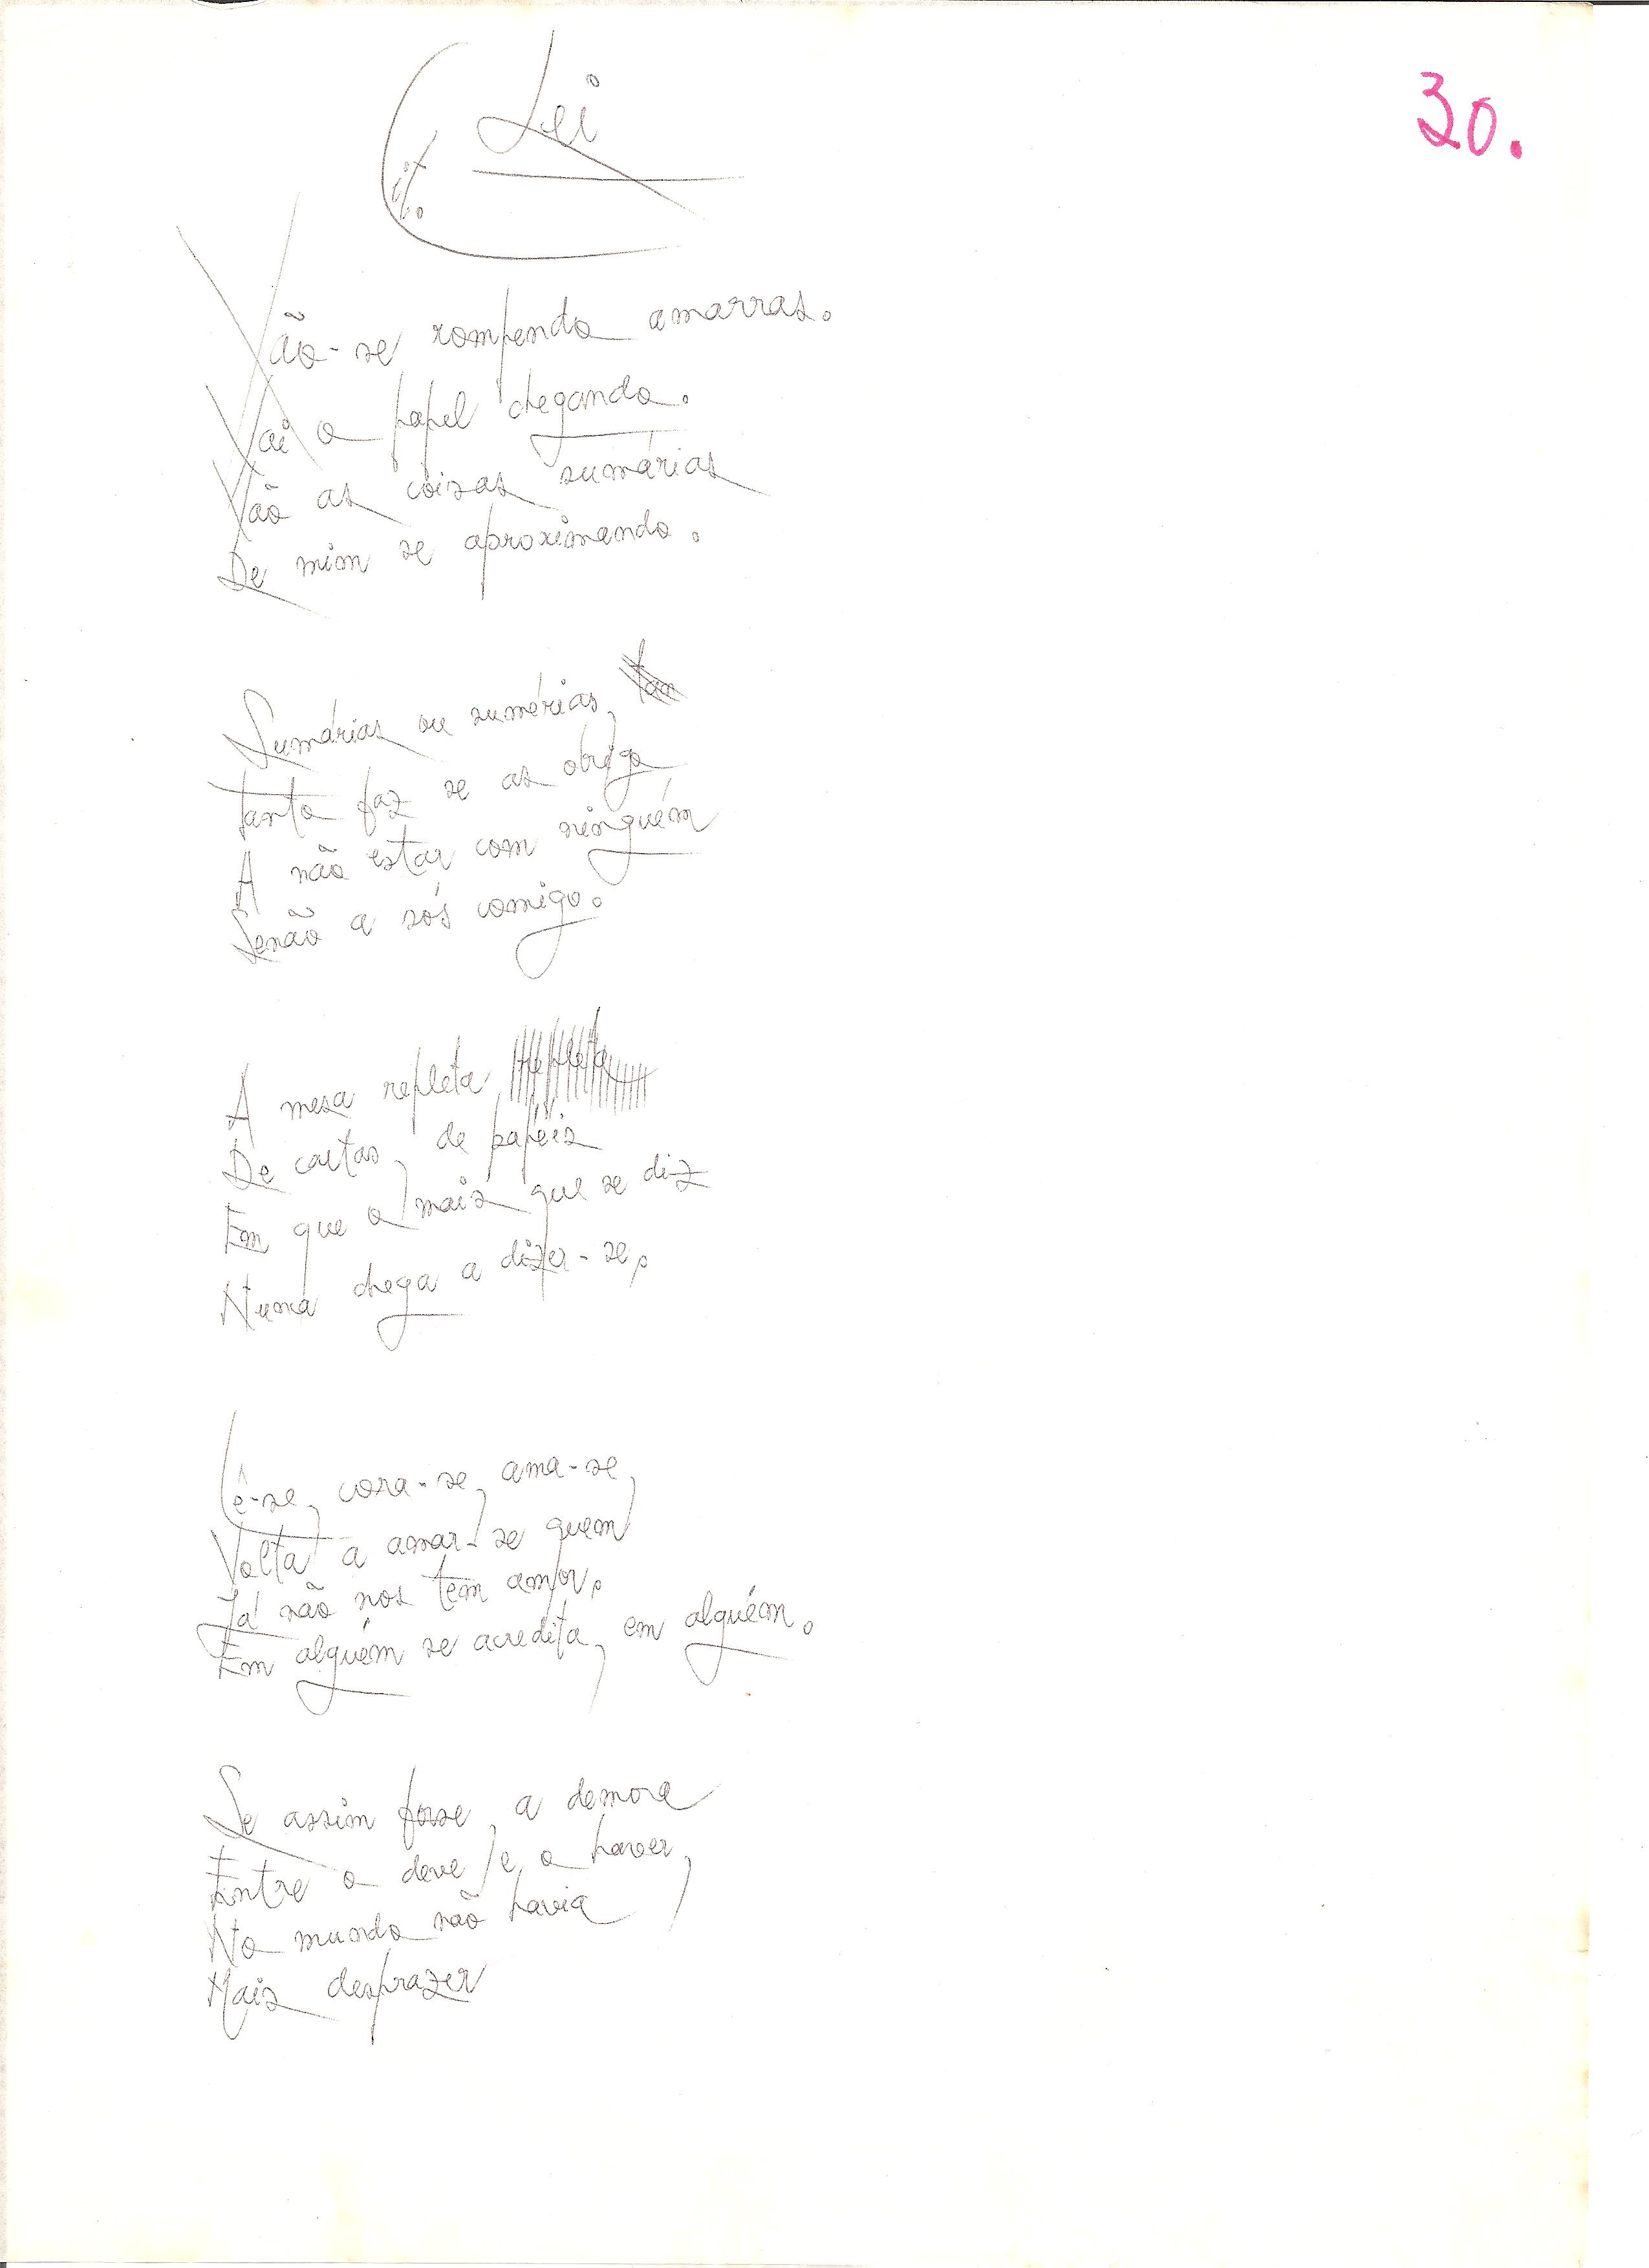 30.
Lei
it.
Vão-se rompendo amarras.
Vai o papel chegando.
Vão as coisas sumárias
De mim se aproximando.
Sumárias ou sumérias, tan
Tanto faz se as obriga
A não estar com ninguém
Senão a sós comigo.
A mesa repleta repleta
De cartas, de papéis
Em que o mais que se diz
Nunca chega a dizer-se,
Lê-se, cora-se, ama-se,
Volta a amar-se quem
Já não nos tem amor,
Em alguém se acredita, em alguém.
Se assim fosse, a demora
Entre o deve e o haver,
No mundo não havia
Mais desprazer